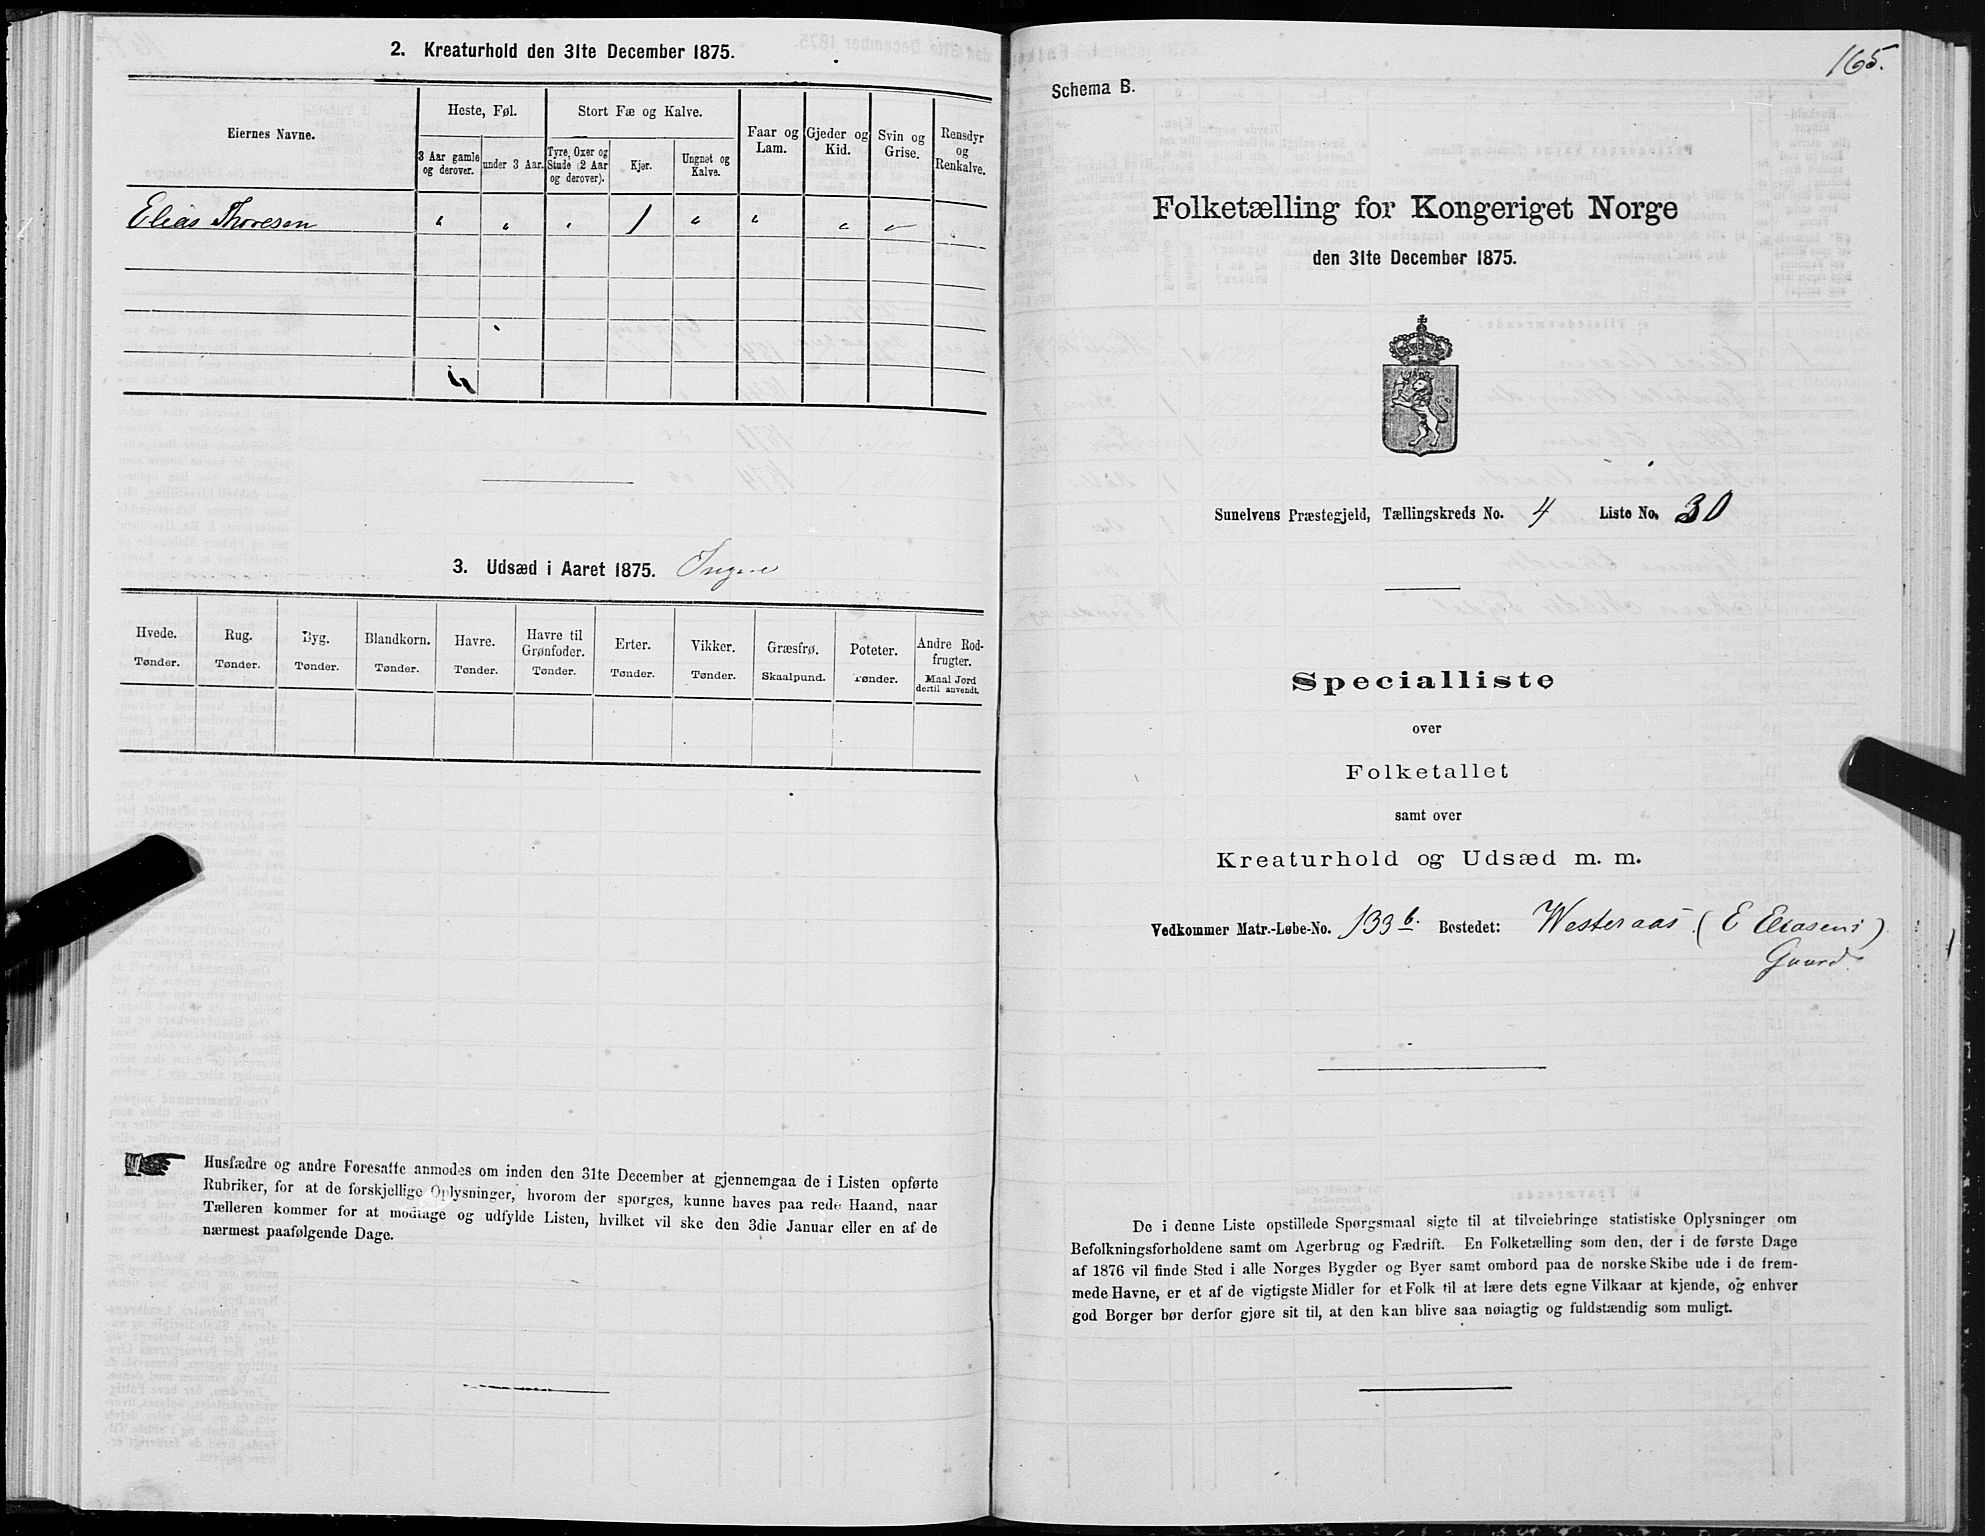 2. Kreaturhold den 31te December 1875.
Eiernes Navne.
Heste, Føl.
Stort Fæ og Kalve.
Faar og
Lam.
Gjeder og
Kid.
Svin og
Grise.
Rensdyr
og
Renkalve.
3 Aar gamle
og derover.
under 3 Aar.
Tyre, Oxer og
Stude (2 Aar
og derover).
Kjør.
Ungnøt og
Kalve.
Elias Thoresen " " " 1 " " " " "
3. Udsæd i Aaret 1875. Ingen
Hvede.
Tønder.
Rug.
Tønder.
Byg.
Tønder.
Blandkorn.
Tønder.
Havre.
Tønder.
Havre til
Grønfoder.
Tønder.
Erter.
Tønder.
Vikker.
Tønder.
Græsfrø.
Skaalpund.
Poteter.
Tønder.
Andre Rod-
frugter.
Maal Jord
dertil anvendt.
Husfædre og andre Foresatte anmodes om inden den 31te December at gjennemgaa de i Listen opførte
Rubriker, for at de forskjellige Oplysninger, hvorom der spørges, kunne haves paa rede Haand, naar
Tælleren kommer for at modtage og udfylde Listen, hvilket vil ske den 3die Januar eller en af de
nærmest paafølgende Dage.
165.
Schema B.
Folketælling for Kongeriget Norge
den 31te December 1875.
Sunelvens Præstegjeld, Tællingskreds No. 4 Liste No. 30
Specialliste
over
Folketallet
samt over
Kreaturhold og Udsæd m. m.
Vedkommer Matr.-Løbe-No. 133 b. Bostedet: Westeraas (E Eliasens)
Gaard
De i denne Liste opstillede Spørgsmaal sigte til at tilveiebringe statistiske Oplysninger om
Befolkningsforholdene samt om Agerbrug og Fædrift. En Folketælling som den, der i de første Dage
af 1876 vil finde Sted i alle Norges Bygder og Byer samt ombord paa de norske Skibe ude i de frem-
mede Havne, er et af de vigtigste Midler for et Folk til at lære dets egne Vilkaar at kjende, og enhver
god Borger bør derfor gjøre sit til, at den kan blive saa nøiagtig og fuldstændig som muligt.